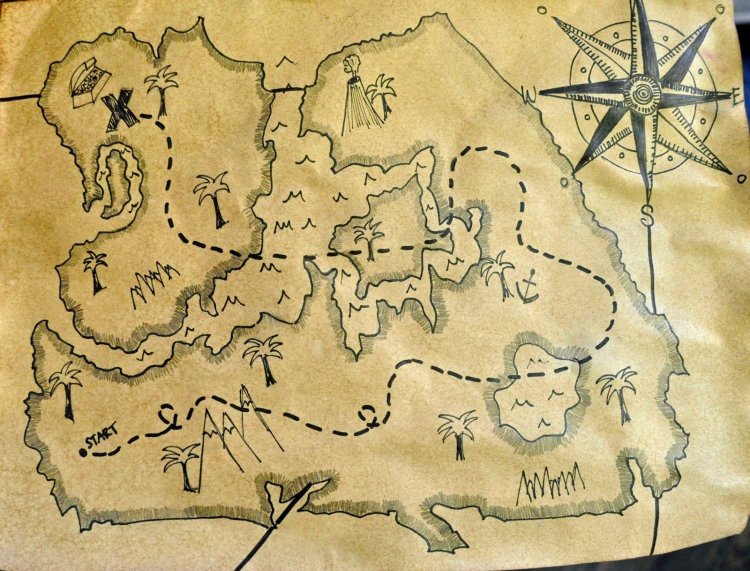 W
E
X
S
START